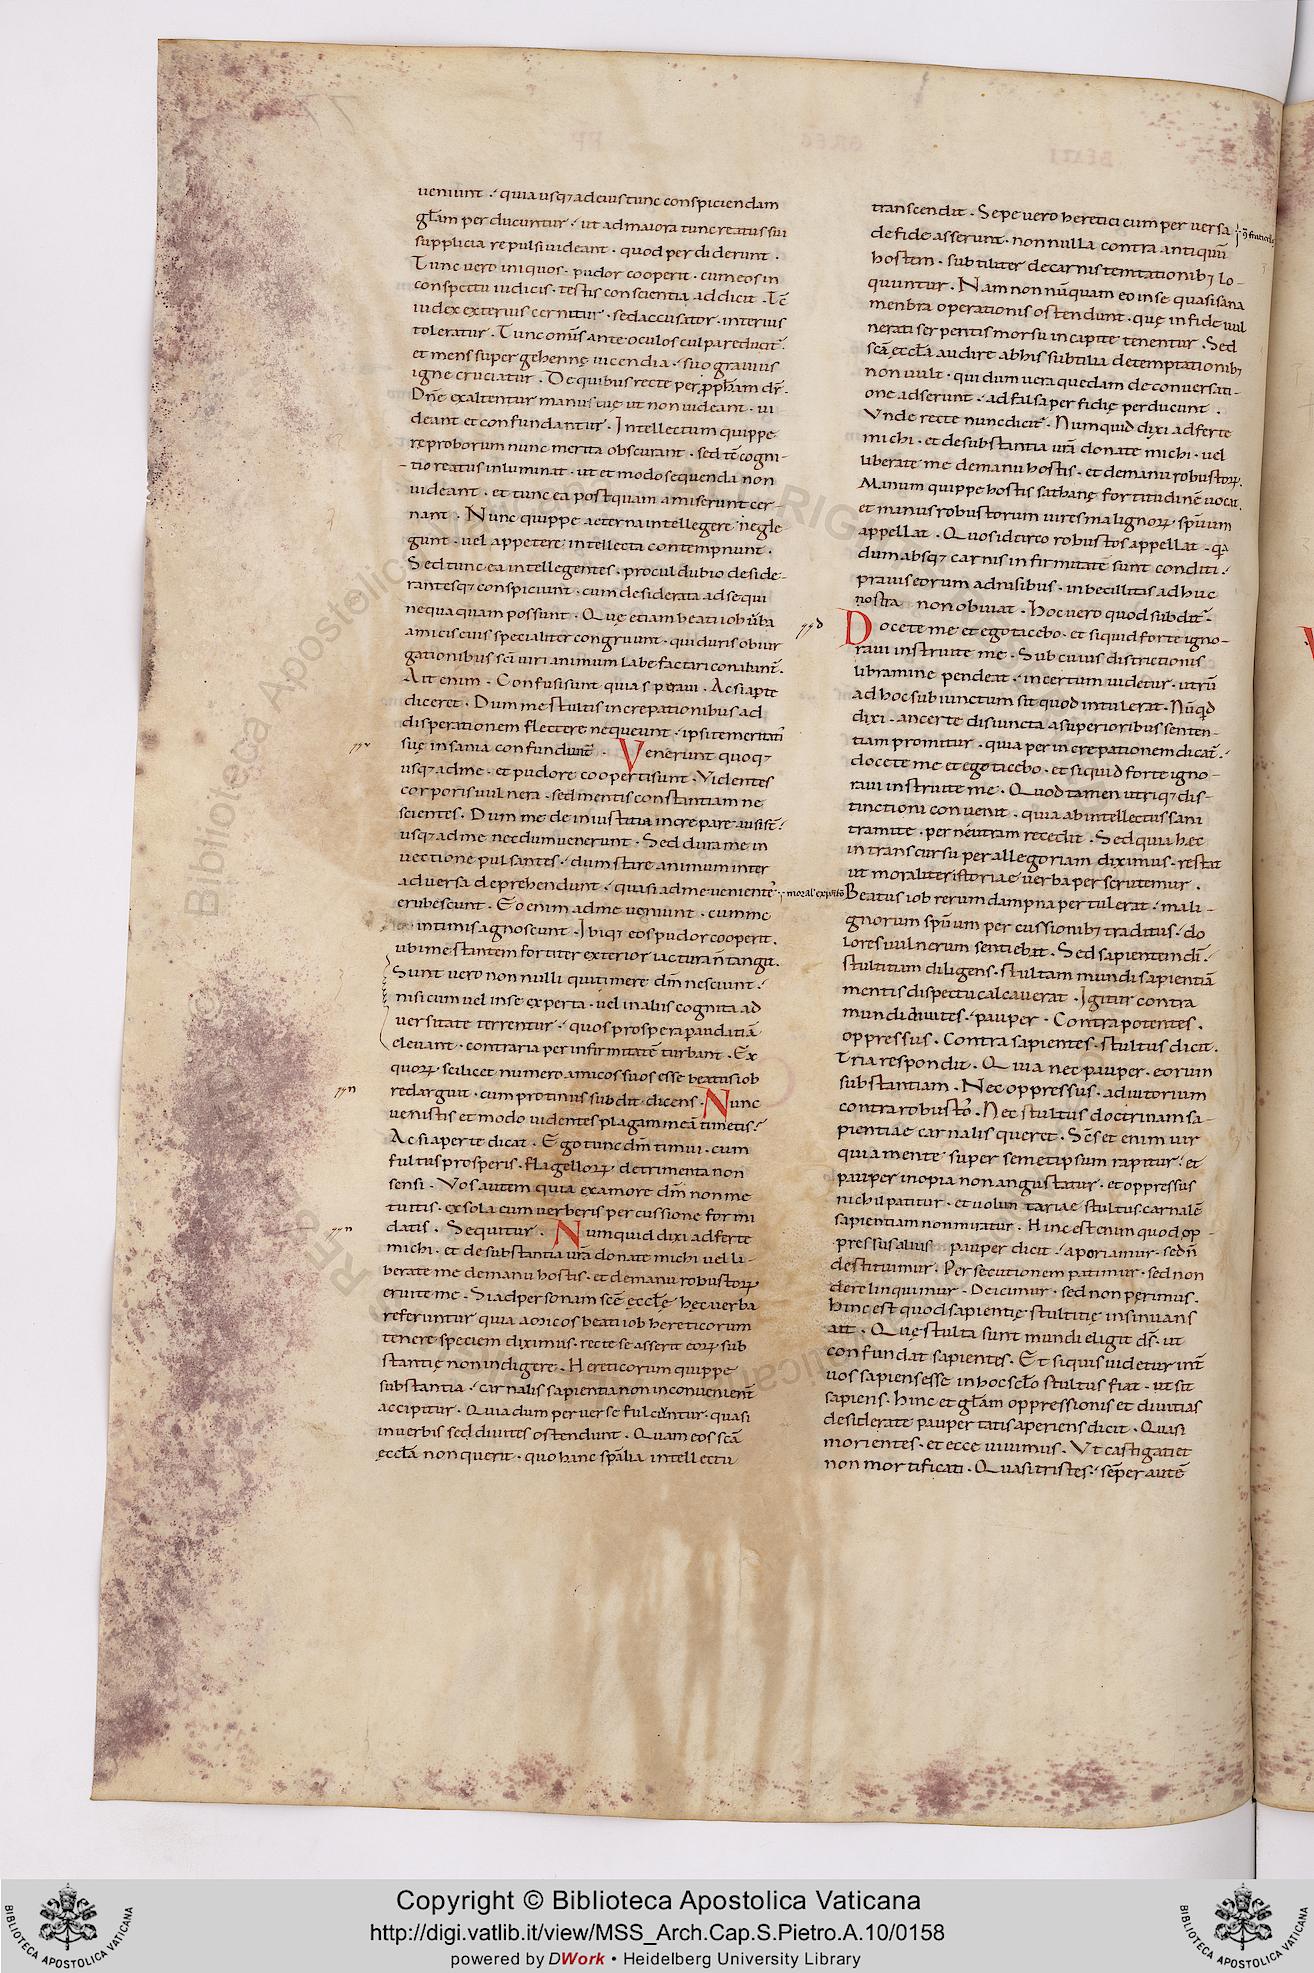 ueniunt · quia usq; ad eius tunc conspiciendam
gl̄am perducuntur · ut ad maiora tunc reatus sui
supplicia repulsi uideant · quod perdiderunt ·
Tunc uero iniquos · pudor cooperit · cum eos in
conspectu iudicis · testis conscientia addicit · Tc̄
iudex exterius cernitur · sed accusator · interius
toleratur · Tunc om̄is ante oculos culpa reducit̄ ·
et mens super gehennę incendia · suo grauius
igne cruciatur · De quibus recte per pp̄ham dr̄ ·
Dn̄e exaltentur manus tuę ut non uideant · ui
deant et confundantur · Intellectum quippe
reproborum nunc merita obscurant · sed tc̄ cogni-
tio reatus inluminat · ut et modo sequenda non
uideant · et tunc ea postquam amiserunt cer-
nant · Nunc quippe aeterna intellegere negle
gunt · uel appetere intellecta contempnunt ·
Sed tunc ea intellegentes · procul dubio deside-
rantesq; conspiciunt · cum desiderata adsequi
nequaquam possunt · Quę etiam beati iob ūba
amicis eius specialiter congruunt · qui duris obiur
gationibus sc̄i uiri animum labefactari conabant̄ ·
Ait enim · Confusi sunt quia speraui · Ac si aperte
diceret · Dum me stultis increpationibus ad
disperationem flectere nequeunt · ipsi temeritati
suę insania confundunt̄ · Venerunt quoq;
usq; ad me · et pudore cooperti sunt · Videntes
corporis uulnera · sed mentis constantiam ne
scientes · Dum me de iniustitia increpare ausi st̄ ·
usq; ad me necdum uenerunt · Sed dura me in
uectione pulsantes · dum stare animum inter
aduersa deprehendunt · quasi ad me uenientes
erubescunt · Eo enim ad me ueniunt · cum me
intimis agnoscunt · Ibiq; eos pudor cooperit ·
ubi me stantem fortiter exterior iactura n̄ tangit ·
Sunt uero non nulli qui timere dm̄ nesciunt ·
nisi cum uel in se experta · uel in aliis cognita ad
uersitate terrentur · quos prospera p audatiā
eleuant · contraria per infirmitatē turbant · Ex
quorꝝ scilicet numero amicos suos esse beatus iob
redarguit · cum protinus subdit dicens · Nunc
uenistis et modo uidentes plagam meā timetis ·
Ac si aperte dicat · Ego tunc dm̄ timui · cum
fultus prosperis · flagellorꝝ detrimenta non
sensi · Vos autem quia ex amore dm̄ non me
tuitis · ex sola eum uerberis percussione formi
datis · Sequitur · Numquid dixi adferte
michi · et de substantia ur̄a donate michi uel li-
berate me de manu hostis · et de manu robustorꝝ
eruite me · Si ad personam scē ęccłę hęc uerba
referuntur quia amicos beati iob hereticorum
tenere speciem diximus · recte se asserit eorꝝ sub
stantię non indigere · Hereticorum quippe
substantia · carnalis sapientia non inconuenient̄
accipitur · Quia dum peruerse fulciuntur · quasi
in uerbis se diuites ostendunt · Quam eos scā
ęccłā non querit · quo hanc spālia intellectu
transcendit · Sepe uero heretici cum peruersa
de fide asserunt · non nulla contra antiquū
hostem · subtiliter de carnis temtationib; lo-
quuntur · Nam non nūquam eo in se quasi sana
menbra operationis ostendunt · quę in fide uul
nerati serpentis morsu in capite tenentur · Sed
scā ęccłā audire ab his subtilia de temptationib;
non uult · qui dum uera quedam de conuersati-
one adserunt · ad falsa perfidię perducunt ·
Vnde recte nunc dicit̄ · Numquid dixi adferte
michi · et de substantia ur̄a donate michi · uel
liberate me de manu hostis · et de manu robustorꝝ ·
Manum quippe hostis sathanę fortitudinē uocat ·
et manus robustorum uires malignorꝝ spūum
appellat · Quos idcirco robustos appellat · qa
dum absq; carnis infirmitate sunt conditi ·
prauis eorum adnisibus · inbecillitas adhuc
nostra non obuiat · Hoc uero quod subdit̄ ·
Docete me et ego tacebo · et siquid forte igno-
raui instruite me · Sub cuius districtionis
libramine pendeat · incertum uidetur · utrū
ad hoc subiunctum sit quod intulerat · Nūqd
dixi · an certe disiuncta a superioribus senten-
tiam promitur · quia per increpationem dicat̄ ·
docete me et ego tacebo · et siquid forte igno-
raui instruite me · Quod tamen utriq; dis-
tinctioni conuenit · quia ab intellectus sani
tramite · per neutram recedit · Sed quia hec
in transcursu per allegoriam diximus · restat
ut moraliter istoriae uerba perscrutemur ·
moral' expositio
Beatus iob rerum dampna pertulerat · mali-
gnorum spūum percussionib; traditus · do
lores uulnerum sentiebat · Sed sapientem dī ·
stultitiam diligens · stultam mundi sapientiā
mentis dispectu calcauerat · Igitur contra
mundi diuites · pauper · Contra potentes ·
oppressus · Contra sapientes · stultus dicit ·
Tria respondit · Quia nec pauper · eorum
substantiam · Nec oppressus · adiutorium
contra robustos · Nec stultus doctrinam sa-
pientiae carnalis queret · Sc̄s et enim uir
quia mente super semetipsum rapitur · et
pauper inopia non angustatur · et oppressus
nichil patitur · et uoluntariae stultus carnalē
sapientiam non miratur · Hinc est enim quod op
pressus alius pauper dicit · aporiamur · sed n̄
destituimur · Persecutionem patimur · sed non
derelinquimur · Deicimur · sed non perimus ·
hinc est quod sapientię stultitię insinuans
ait · Quę stulta sunt mundi eligit ds̄ · ut
confundat sapientes · Et siquis uidetur int̄
uos sapiens esse in hoc scło stultus fiat · ut sit
sapiens · hinc et gl̄am oppressionis et diuitias
desiderate paupertatis aperiens dicit · Quasi
morientes · et ecce uiuimus · Vt castigati et
non mortificati · Quasi tristes · sēper autē
Copyright © Biblioteca Apostolica Vaticana
http://digi.vatlib.it/view/MSS_Arch.Cap.S.Pietro.A.10/0158
powered by DWork • Heidelberg University Library